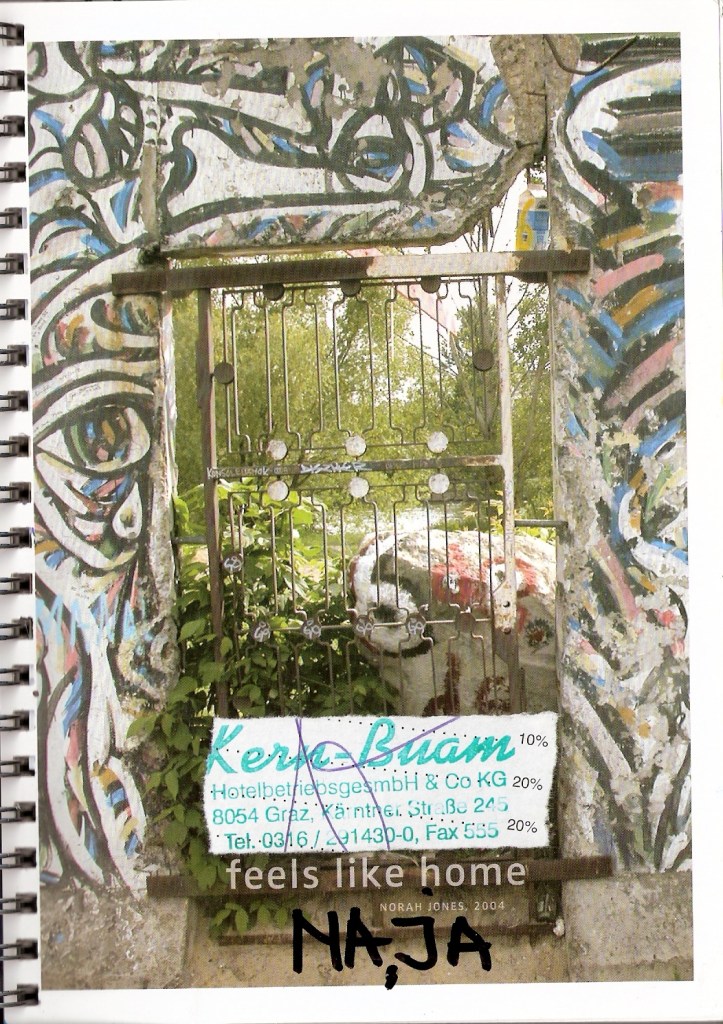 Kern-Buam 10%
HotelbetriebsgesmbH & Co KG 20%
8054 Graz, Kärntner Straße 245
Tel. 0316 / 291430-0, Fax 555 20%
feels like home
NORAH JONES, 2004
NA,JA